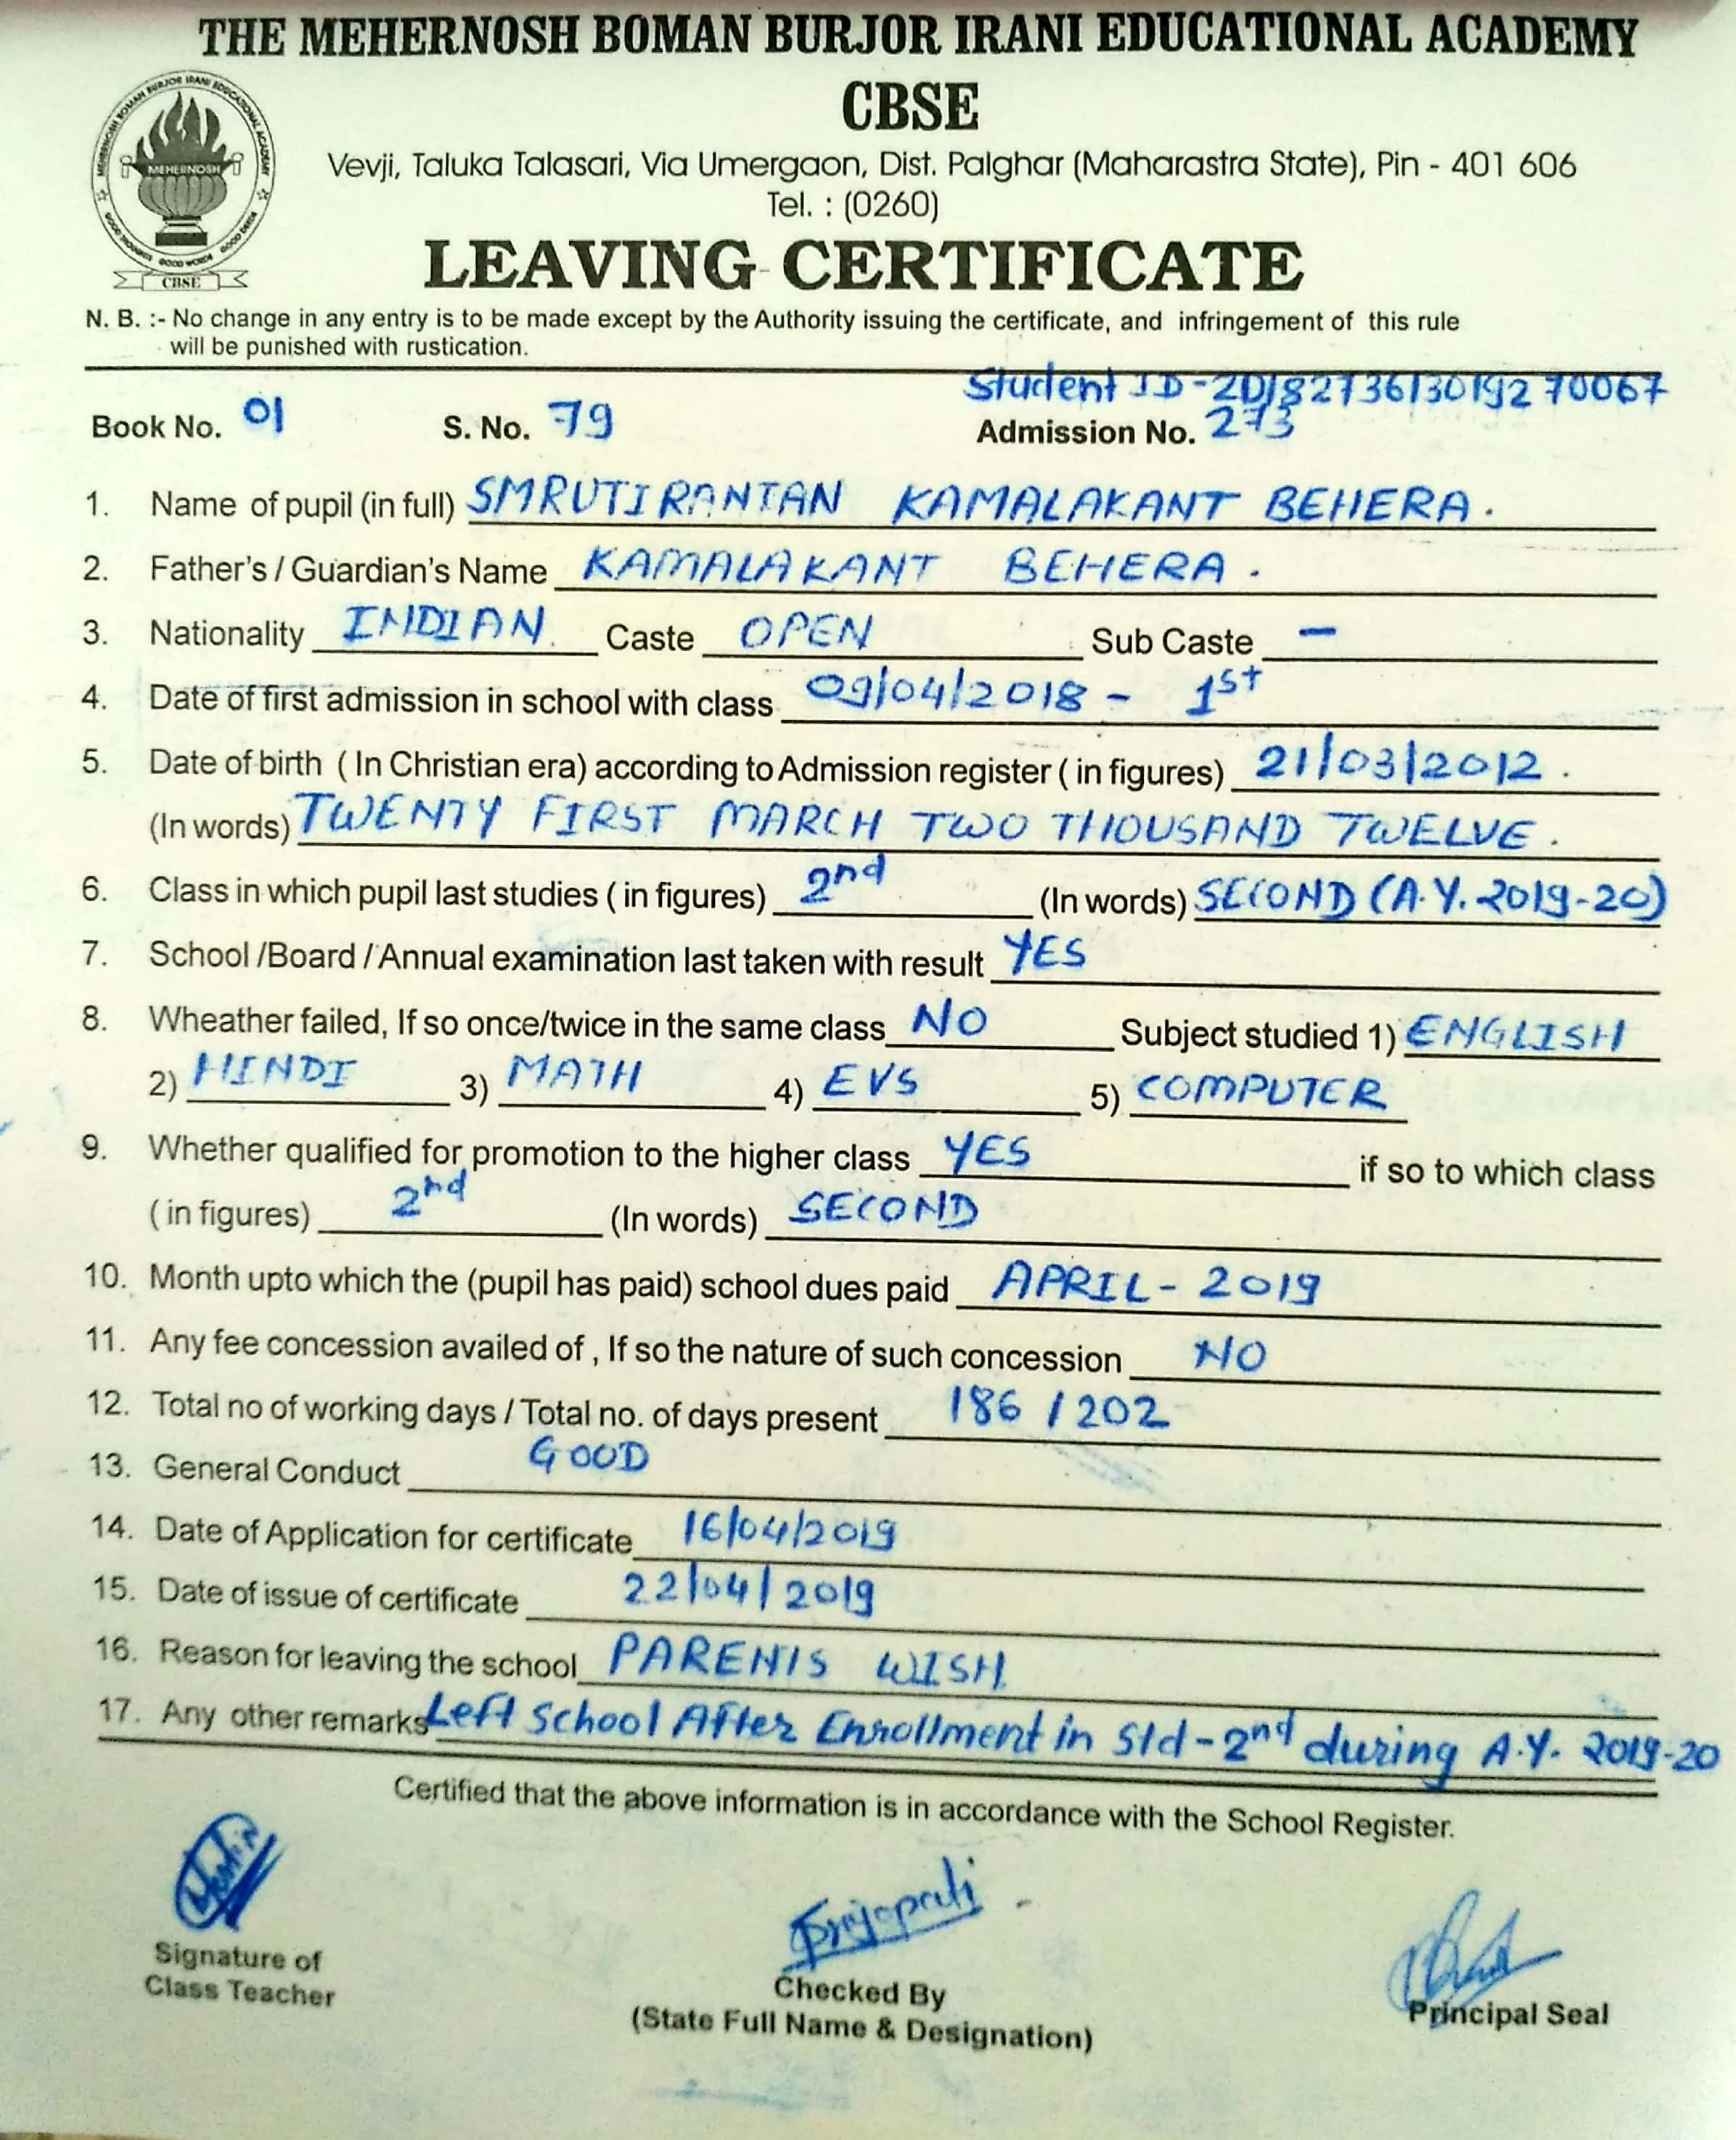 THE MEHERNOSH BOMAN BURJOR IRANI EDUCATIONAL ACADEMY
CBSE
MEHERNOSH BOMAN BURJOR IRANI EDUCATIONAL ACADEMY
MEHERNOSH
GOOD THOUGHTS GOOD WORDS GOOD DEEDS
CBSE
Vevji, Taluka Talasari, Via Umergaon, Dist. Palghar (Maharastra State), Pin - 401 606
Tel. : (0260)
LEAVING CERTIFICATE
N. B. :- No change in any entry is to be made except by the Authority issuing the certificate, and infringement of this rule
will be punished with rustication.
Student ID - 2018273613019270067
Book No. 01 S. No. 79 Admission No. 273
1. Name of pupil (in full) SMRUTIRANTAN KAMALAKANT BEHERA.
2. Father's / Guardian's Name KAMALAKANT BEHERA.
3. Nationality INDIAN Caste OPEN Sub Caste —
4. Date of first admission in school with class 09/04/2018 - 1st
5. Date of birth ( In Christian era) according to Admission register ( in figures) 21/03/2012.
(In words) TWENTY FIRST MARCH TWO THOUSAND TWELVE.
6. Class in which pupil last studies ( in figures) 2nd (In words) SECOND (A.Y. 2019-20)
7. School /Board / Annual examination last taken with result YES
8. Wheather failed, If so once/twice in the same class NO Subject studied 1) ENGLISH
2) HINDI 3) MATH 4) EVS 5) COMPUTER
9. Whether qualified for promotion to the higher class YES if so to which class
( in figures) 2nd (In words) SECOND
10. Month upto which the (pupil has paid) school dues paid APRIL - 2019
11. Any fee concession availed of , If so the nature of such concession NO
12. Total no of working days / Total no. of days present 186 / 202
13. General Conduct GOOD
14. Date of Application for certificate 16/04/2019
15. Date of issue of certificate 22/04/2019
16. Reason for leaving the school PARENTS WISH
17. Any other remarks Left School After Enrollment in Std - 2nd during A.Y. 2019-20
Certified that the above information is in accordance with the School Register.
Prajapati
Signature of
Class Teacher
Checked By
(State Full Name & Designation)
Principal Seal